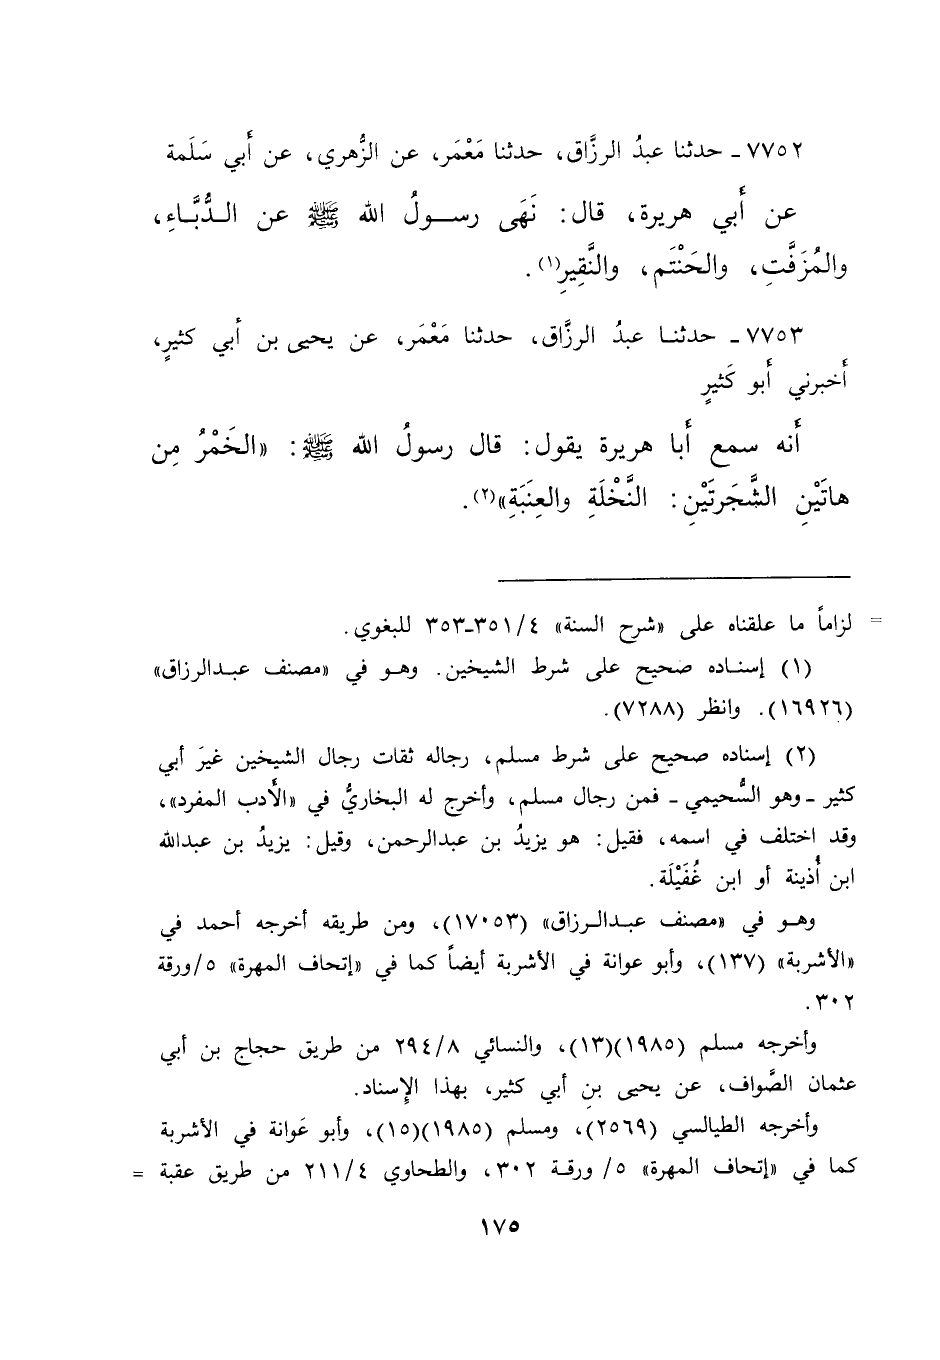 ٧٧٥٢ ـ حدثنا عبدُ الرزَّاق، حدثنا مَعْمَر، عن الزُّهري، عن أَبي سَلَمة
عن أَبي هريرة، قال: نَهَى رســولُ الله ﷺ عن الـدُّبَّـاءِ،
والمُزَفَّتِ، والحَنْتَم، والنَّقِيرِ(١).
٧٧٥٣ ـ حدثنـا عبدُ الرزَّاق، حدثنا مَعْمَر، عن يحيى بن أَبي كثيرٍ،
أَخبرني أَبو كَثيرٍ
أَنه سمع أَبا هريرة يقول: قال رسولُ الله ﷺ: «الخَمْرُ مِن
هاتَيْنِ الشَّجَرتَيْنِ: النَّخْلَةِ والعِنَبَةِ»(٢).
= لزاماً ما علقناه على «شرح السنة» ٣٥١/٤ـ٣٥٣ للبغوي.
(١) إسنـاده صحيح على شرط الشيخين. وهـو في «مصنف عبـدالرزاق»
(١٦٩٢٦). وانظر (٧٢٨٨).
(٢) إسناده صحيح على شرط مسلم، رجاله ثقات رجال الشيخين غيرَ أبي
كثير ـ وهو السُّحيمي ـ فمن رجال مسلم، وأخرج له البخاريُّ في «الأدب المفرد»،
وقد اختلف في اسمه، فقيل: هو يزيدُ بن عبدالرحمن، وقيل: يزيدُ بن عبدالله
ابن أُذينة أو ابن غُفَيْلَة.
وهـو في «مصنف عبـدالـرزاق» (١٧٠٥٣)، ومن طريقه أخرجه أحمد في
«الأشربة» (١٣٧)، وأبو عوانة في الأشربة أيضاً كما في «إتحاف المهرة» ٥/ورقة
٣٠٢.
وأخرجه مسلم (١٩٨٥)(١٣)، والنسائي ٢٩٤/٨ من طريق حجاج بن أبي
عثمان الصَّواف، عن يحيى بنِ أبي كثير، بهذا الإِسناد.
وأخرجه الطيالسي (٢٥٦٩)، ومسلم (١٩٨٥)(١٥)، وأبو عَوانة في الأشربة
كما في «إتحاف المهرة» ٥/ ورقـة ٣٠٢، والطحاوي ٢١١/٤ من طريق عقبة =
١٧٥